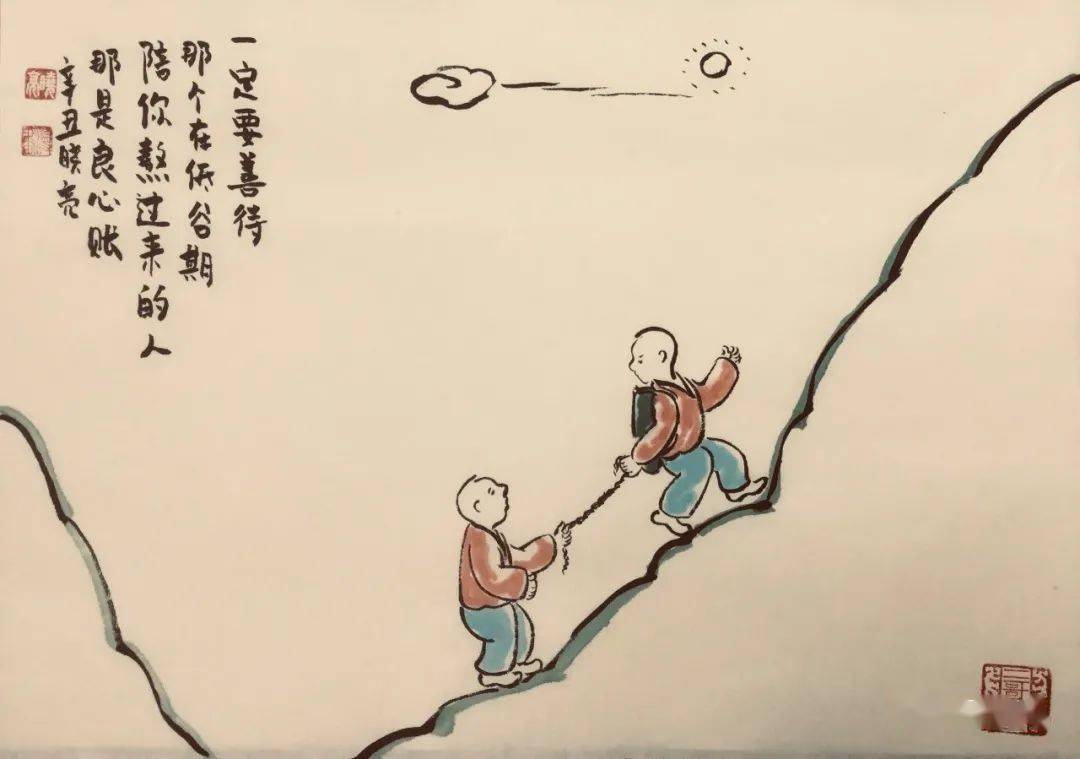 一定要善待
那个在低谷期
陪你熬过来的人
那是良心账
辛丑晓亮